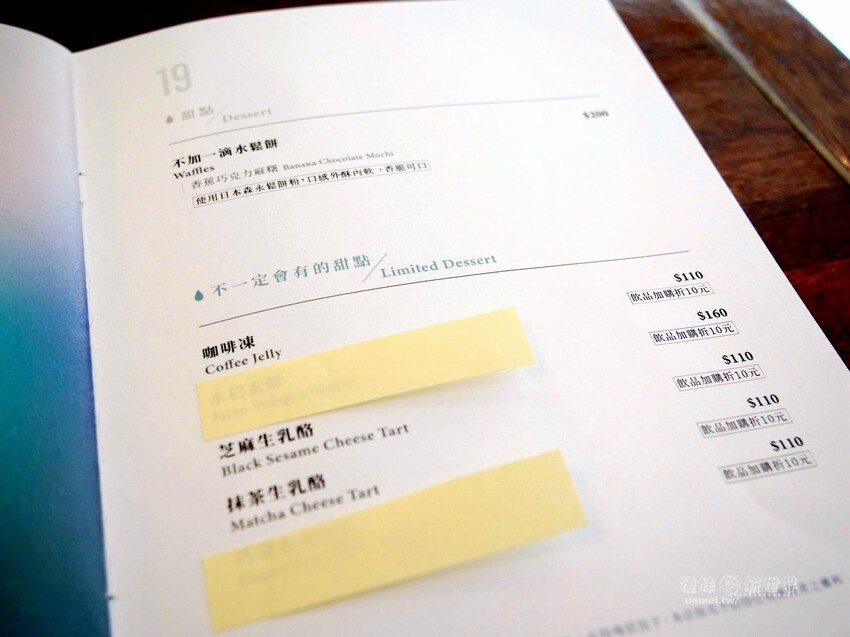 19
甜點 / Dessert
不加一滴水鬆餅 $200
Waffles
香蕉巧克力麻糬 Banana Chocolate Mochi
使用日本森永鬆餅粉，口感外酥內軟，香脆可口
不一定會有的甜點 / Limited Dessert
咖啡凍 $110
Coffee Jelly 飲品加購折10元
$160
飲品加購折10元
芝麻生乳酪 $110
Black Sesame Cheese Tart 飲品加購折10元
抹茶生乳酪 $110
Matcha Cheese Tart 飲品加購折10元
$110
飲品加購折10元
新世界
demei.tw/